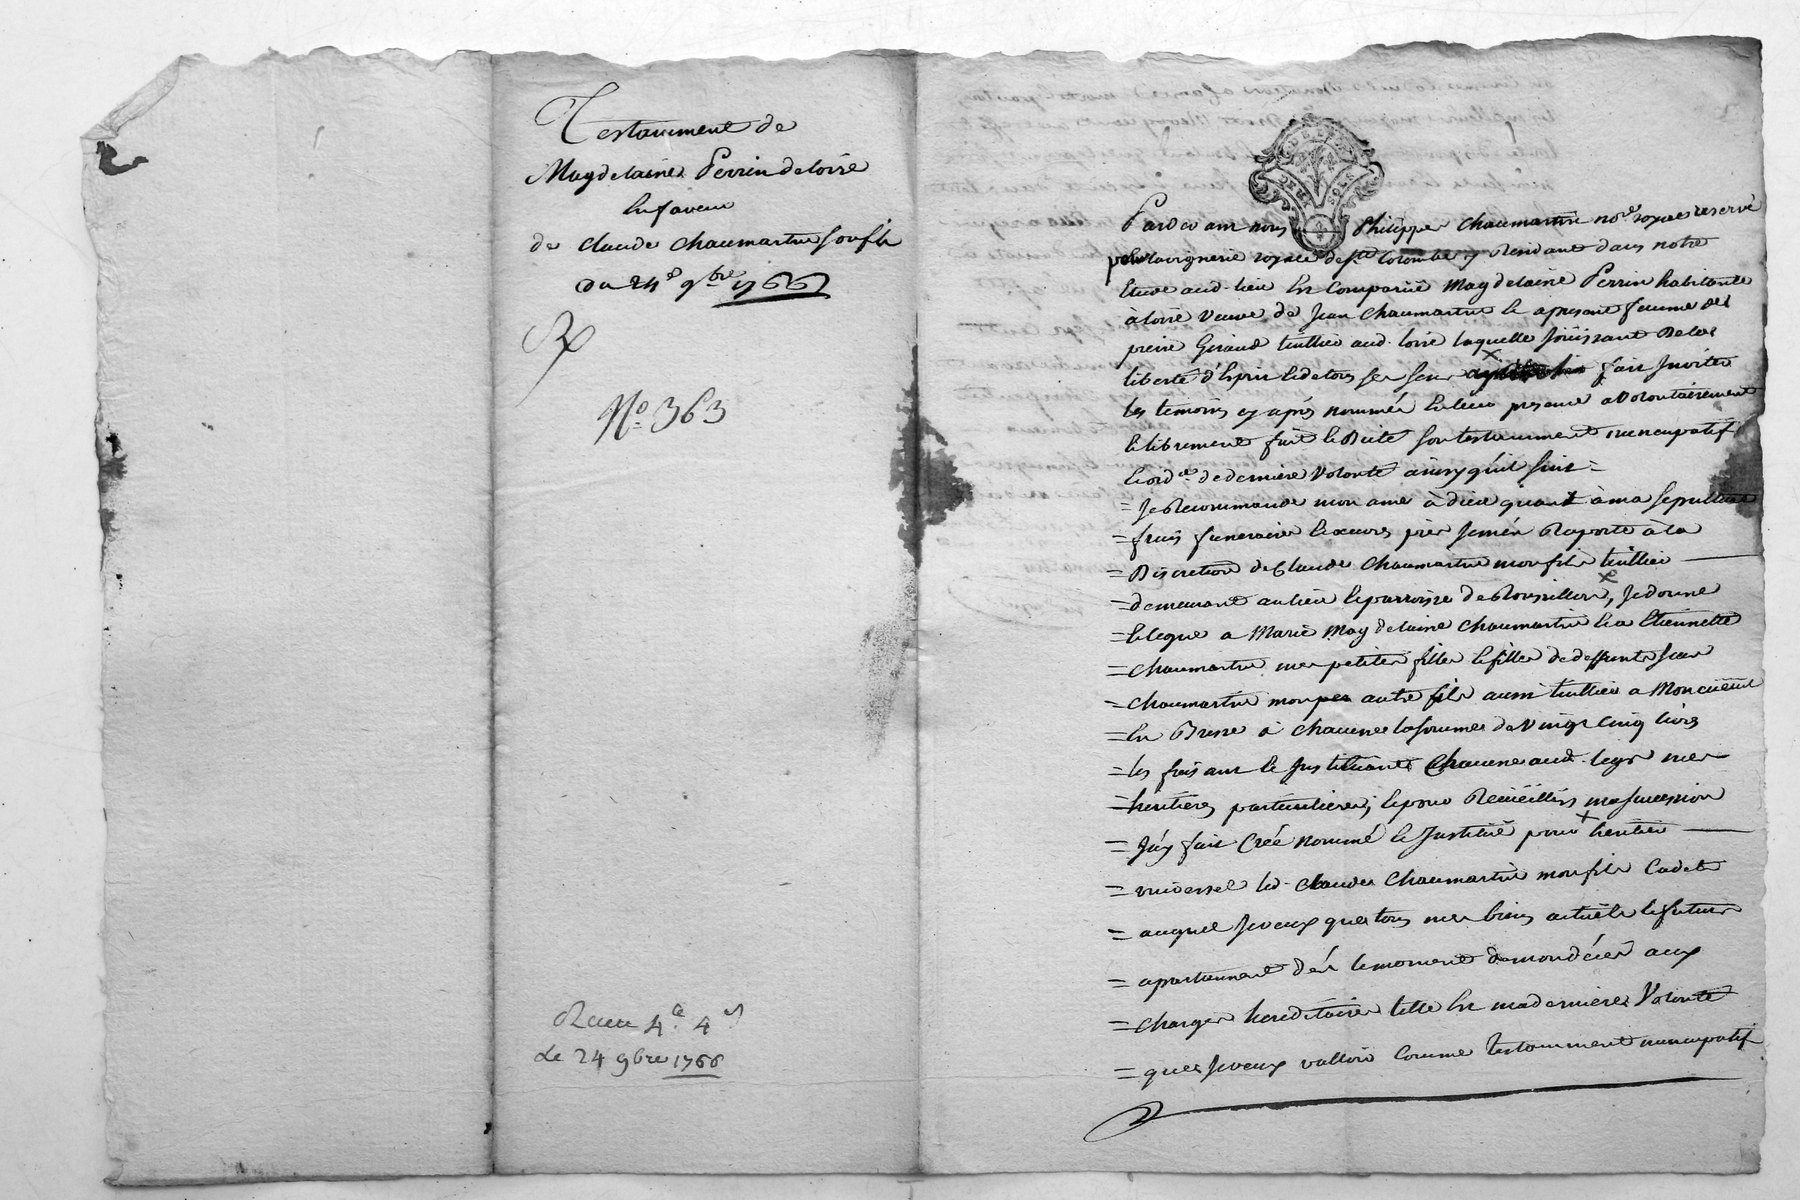 Testamment de
Magdelaine Perrin de loire
En faveur
de Claude Chaumartin son fils
du 24e 9bre 1766
No. 363
Receu 4
Le 24 9bre 1766
DEUX SOLS
Pardevant nous Philippe Chaumartin nore royal reservé
pour la vignerie royale de ste Colombe y Residant dans notre
Etude aud. lieu Est Comparüe Magdelaine Perrin habitante
à loire veuve de Jean Chaumartin et apresant femme de
pierre Giraud tuillier aud. loire laquelle Joüissant De la
liberté d'Esprit Et de tous ses sens fait Inviter
les temoins cy après nommés En leur presence a volontairement
et librement fait et Dicté son testamment nuncupatif
et ord.re de derniere volonté ainsy qu'il suit =
= Je Recommande mon ame à dieu quant à ma sepulture
= frais funeraires Et œuvres pies Jemén Raporte à la
= Discretion de Claude Chaumartin mon fils tuillier
= demeurant au lieu Et parroisse de Roussillon, Je donne
= Et legue a Marie Magdelaine Chaumartin Et a Etiennette
= Chaumartin mes petites filles Et filles de deffunt Jean
= Chaumartin mon autre fils aussi tuillier a Moncüeul
= En Bresse à Chacune la somme de Vingt Cinq livres
= les faisant Et Instituant Chacune aud. legs mes
= heritieres particulieres; Et pour Reciieillir ma succession
= J'ay fait Créé nommé Et Institüé pour heritier
= universel led. Claude Chaumartin mon fils Cadet
= auquel Je veux que tous mes biens actuels Et futurs
= apartiennent dés le moment de mon décés aux
= charges hereditaires telle Est ma derniere Volonté
= que Je veux valloir Comme Testamment nuncupatif